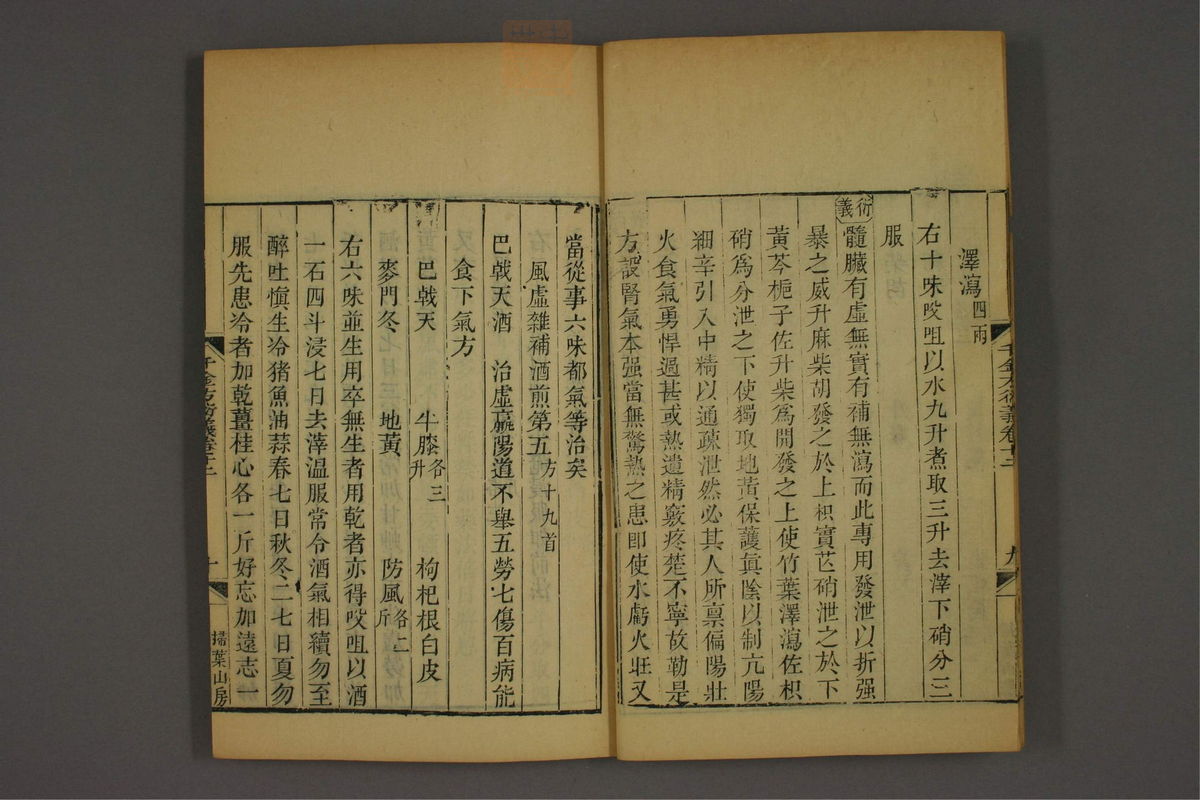 澤瀉四兩
右十味㕮咀以水九升煮取三升去滓下硝分三
服
衍義
髓臟有虛無實有補無瀉而此專用發泄以折强
暴之威升麻柴胡發之於上枳實芒硝泄之於下
黃芩梔子佐升柴爲開發之上使竹葉澤瀉佐枳
硝爲分泄之下使獨取地黃保護眞陰以制亢陽
細辛引入中精以通疎泄然必其人所禀偏陽壯
火食氣勇悍過甚或熱遺精竅疼楚不寧故勒是
方設腎氣本强當無驚熱之患卽使水虧火旺又
千金方衍義卷十二
九
當從事六味都氣等治矣
風虛雜補酒煎第五方十九首
巴戟天酒 治虛羸陽道不舉五勞七傷百病能
食下氣方
巴戟天 牛膝各三升 枸杞根白皮
麥門冬 地黃 防風各二斤
右六味並生用卒無生者用乾者亦得㕮咀以酒
一石四斗浸七日去滓温服常令酒氣相續勿至
醉吐愼生冷猪魚油蒜春七日秋冬二七日夏勿
服先患冷者加乾薑桂心各一斤好忘加遠志一
千金方衍義卷十二
十
掃葉山房